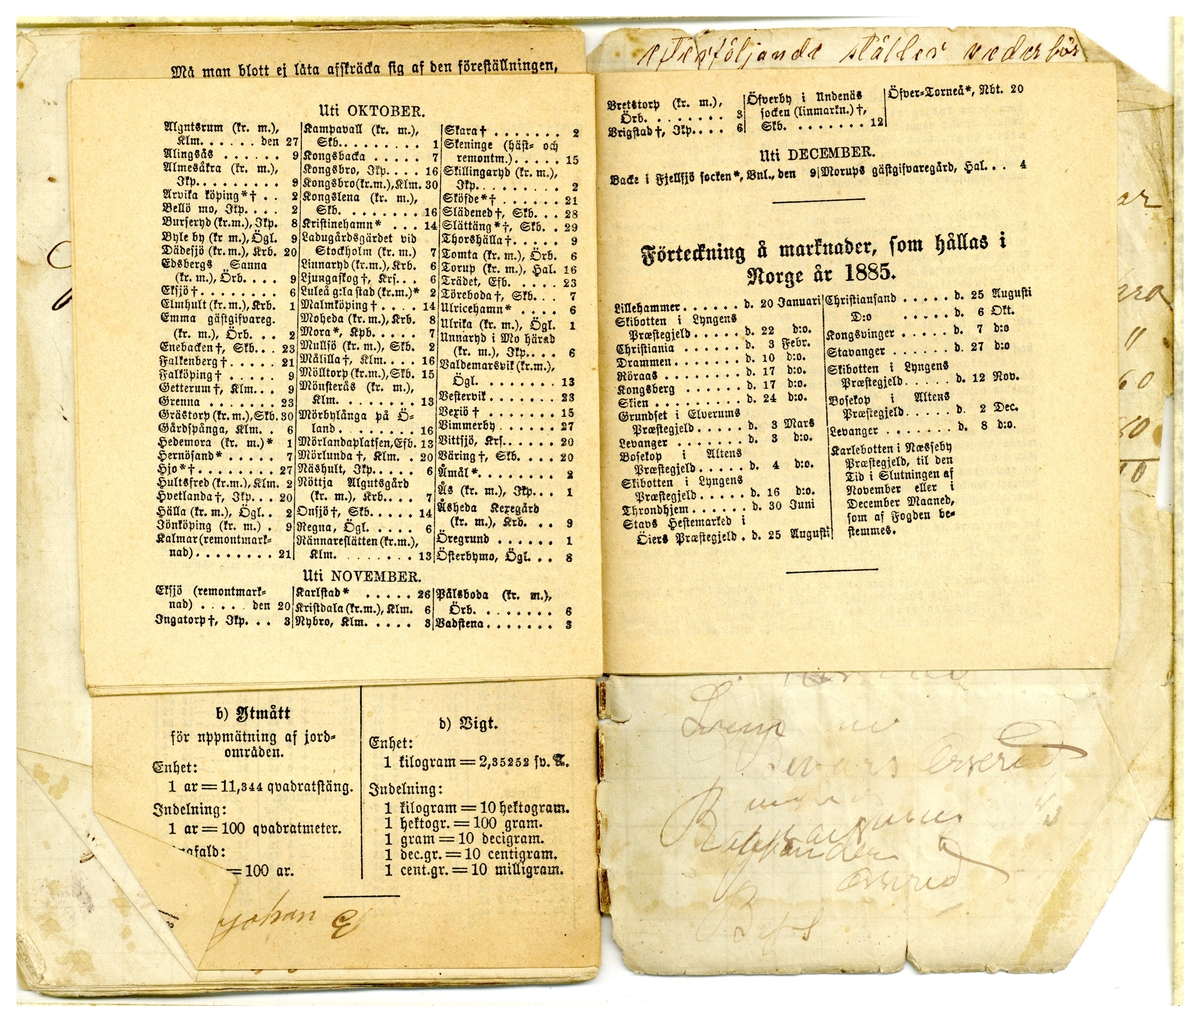 Må man blott ej låta afskräcka sig af den föreställningen,
Uti OKTOBER.
Algutsrum (kr. m.),
Klm. . . . . den 27
Alingsås . . . . . . 9
Almesåkra (kr. m.),
Jkp. . . . . . . . . 9
Arvika köping*† . . 2
Bellö mo, Jkp. . . . 2
Burseryd (kr.m.), Jkp. 8
Byle by (kr. m.), Ögl. 9
Dädesjö (kr. m.), Krb. 20
Edsbergs Sanna
(kr. m.), Örb. . . . 9
Eksjö† . . . . . . . 6
Elmhult (kr. m.), Krb. 1
Emma gästgifvareg.
(kr. m.), Örb. . . . 2
Enebacken†, Skb. . . 23
Falkenberg† . . . . 21
Falköping† . . . . . 9
Getterum†, Klm. . . 9
Grenna . . . . . . . 23
Grästorp (kr.m.), Skb. 30
Gårdspånga, Klm. . . 6
Hedemora (kr. m.)* 1
Hernösand* . . . . . 7
Hjo*† . . . . . . . 27
Hultsfred (kr. m.), Klm. 2
Hvetlanda†, Jkp. . . 20
Hälla (kr. m.), Ögl. . 2
Jönköping (kr. m.) . 9
Kalmar (remontmark-
nad) . . . . . . . . 21
Kampavall (kr. m.),
Skb. . . . . . . . . 1
Kongsbacka . . . . . 7
Kongsbro, Jkp. . . . 16
Kongsbro (kr.m.), Klm. 30
Kongslena (kr. m.),
Skb. . . . . . . . . 16
Kristinehamn* . . . 14
Ladugårdsgärdet vid
Stockholm (kr. m.) 7
Linnaryd (kr. m.), Krb. 6
Ljungaskog†, Krs. . . 6
Luleå g:la stad (kr.m.)* 2
Malmköping† . . . . 14
Moheda (kr. m.), Krb. 8
Mora*, Kpb. . . . . 7
Mullsjö (kr. m.), Skb. 2
Målilla†, Klm. . . . 16
Mölltorp (kr. m.), Skb. 15
Mönsterås (kr. m.),
Klm. . . . . . . . . 13
Mörbylånga på Ö-
land . . . . . . . . 16
Mörlandaplatsen, Efb. 13
Mörlunda†, Klm. . . 20
Näshult, Jkp. . . . . 6
Nöttja Algutsgård
(kr. m.), Krb. . . . 7
Onsjö†, Skb. . . . . 14
Regna, Ögl. . . . . . 6
Rännareslätten (kr. m.),
Klm. . . . . . . . . 13
Skara† . . . . . . . 2
Skeninge (häst- och
remontm.) . . . . . 15
Skillingaryd (kr. m.),
Jkp. . . . . . . . . 2
Sköfde*† . . . . . . 21
Slädened†, Skb. . . . 28
Slättäng*†, Skb. . . 29
Thorshälla† . . . . . 9
Tomta (kr. m.), Örb. 6
Torup (kr. m.), Hal. 16
Trädet, Efb. . . . . 23
Töreboda†, Skb. . . 7
Ulricehamn* . . . . 6
Ulrika (kr. m.), Ögl. 1
Unnaryd i Mo härad
(kr. m.), Jkp. . . . 6
Valdemarsvik (kr. m.),
Ögl. . . . . . . . . 13
Vestervik . . . . . . 23
Vexiö† . . . . . . . 15
Vimmerby . . . . . . 27
Vittsjö, Krs. . . . . 20
Väring†, Skb. . . . . 20
Åmål* . . . . . . . 2
Ås (kr. m.), Jkp. . . 1
Åsheda Kexegård
(kr. m.), Krb. . . . 9
Öregrund . . . . . . 1
Österbymo, Ögl. . . 8
Uti NOVEMBER.
Eksjö (remontmark-
nad) . . . . . den 20
Ingatorp†, Jkp. . . . 3
Karlstad* . . . . . . 26
Kristdala (kr. m.), Klm. 6
Nybro, Klm. . . . . 3
Pålsboda (kr. m.),
Örb. . . . . . . . . 6
Vadstena . . . . . . 3
efterföljande ställes vederbör
Bretstorp (kr. m.),
Örb. . . . . . . . . 3
Brigstad†, Jkp. . . . 6
Öfverby i Undenäs
socken (linmarkn.) †,
Skb. . . . . . . . . 12
Öfver-Torneå*, Nbt. 20
Uti DECEMBER.
Backe i Fjellsjö socken*, Bnl., den 9
Morups gästgifvaregård, Hal. . . 4
Förteckning å marknader, som hållas i
Norge år 1885.
Lillehammer . . . . . d. 20 Januari
Skibotten i Lyngens
Præstegjeld . . . . d. 22 d:o.
Christiania . . . . . d. 3 Febr.
Drammen . . . . . . d. 10 d:o.
Röraas . . . . . . . d. 17 d:o.
Kongsberg . . . . . d. 17 d:o.
Skien . . . . . . . . d. 24 d:o.
Grundset i Elverums
Præstegjeld . . . . d. 3 Mars
Levanger . . . . . . d. 3 d:o.
Bosekop i Altens
Præstegjeld . . . . d. 4 d:o.
Skibotten i Lyngens
Præstegjeld . . . . d. 16 d:o.
Throndhjem . . . . . d. 30 Juni
Stavs Hestemarked i
Öiers Præstegjeld . d. 25 Augusti
Christiansand . . . . d. 25 Augusti
D:o . . . . . d. 6 Okt.
Kongsvinger . . . . . d. 7 d:o
Stavanger . . . . . . d. 27 d:o
Skibotten i Lyngens
Præstegjeld . . . . d. 12 Nov.
Bosekop i Altens
Præstegjeld . . . . d. 2 Dec.
Levanger . . . . . . d. 8 d:o.
Karlebotten i Næsseby
Præstegjeld, til den
Tid i Slutningen af
November eller i
December Maaned,
som af Fogden be-
stemmes.
b) Ytmått
för uppmätning af jord-
områden.
Enhet:
1 ar = 11,344 qvadratstäng.
Indelning:
1 ar = 100 qvadratmeter.
afald:
= 100 ar.
d) Vigt.
Enhet:
1 kilogram = 2,35252 sv. ℔.
Indelning:
1 kilogram = 10 hektogram.
1 hektogr. = 100 gram.
1 gram = 10 decigram.
1 dec.gr. = 10 centigram.
1 cent.gr. = 10 milligram.
Johan E